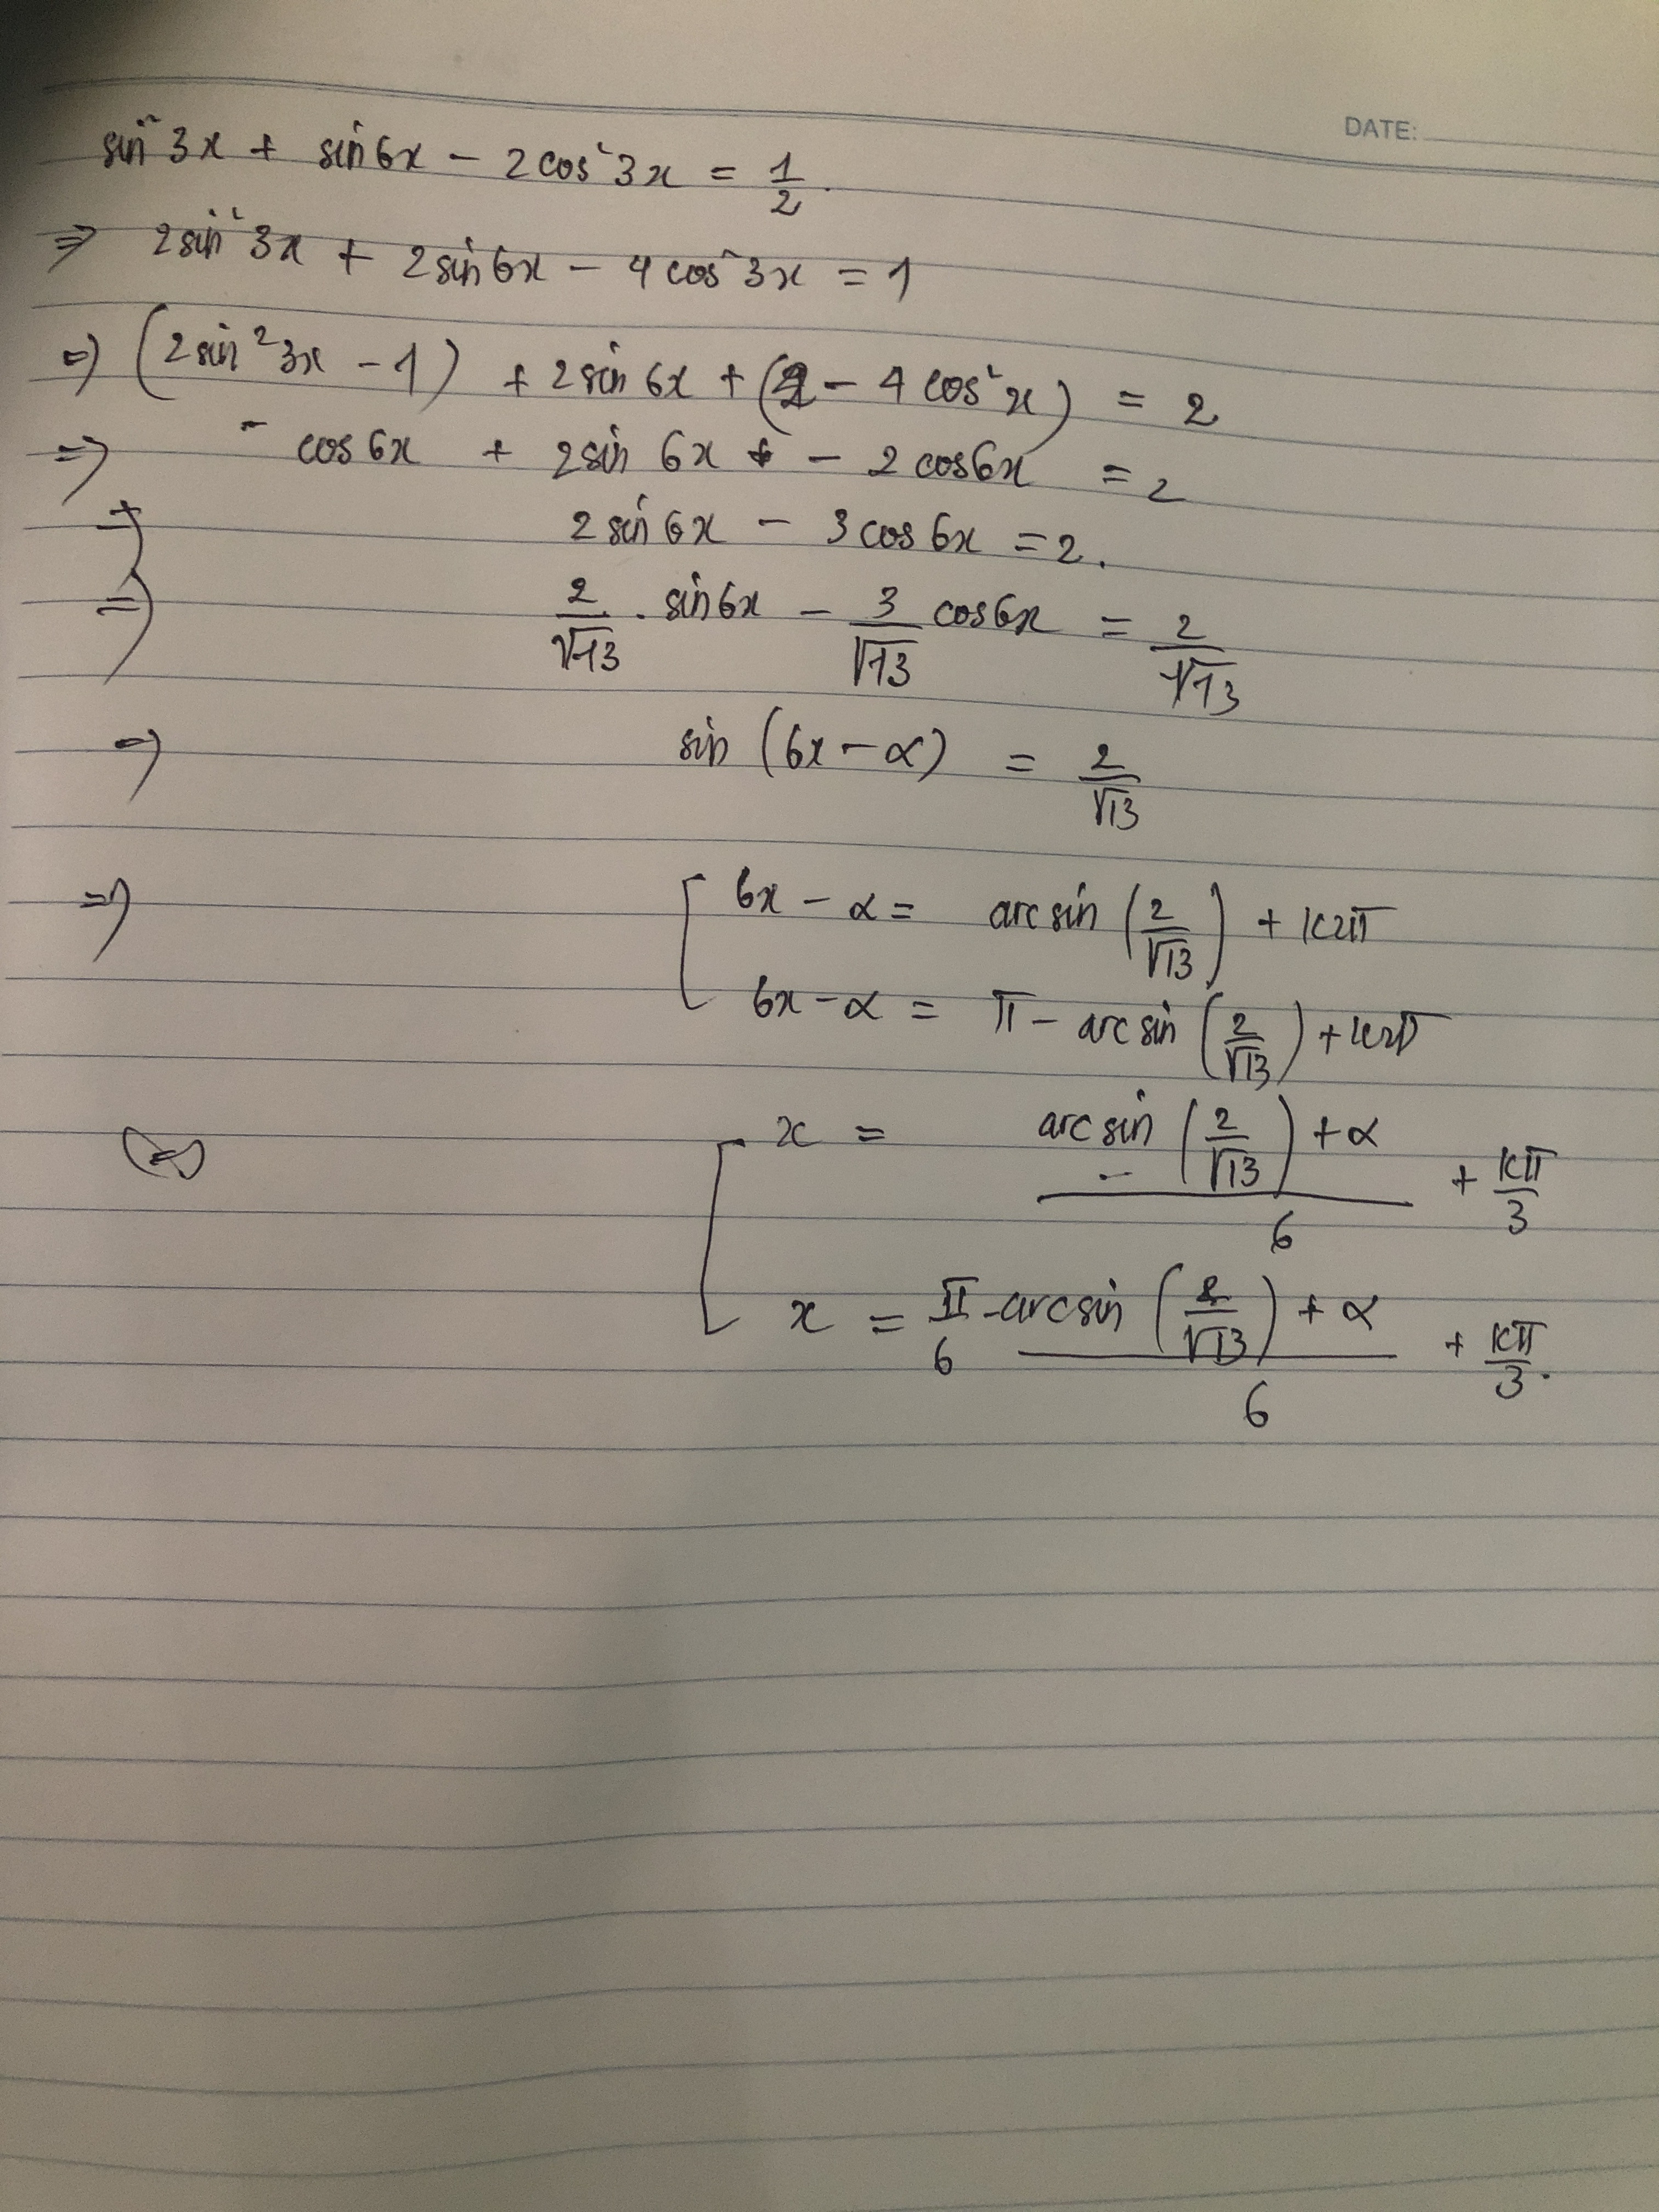 DATE:
sin²3x + sin6x − 2cos²3x = 1/2.
=> 2sin²3x + 2sin6x − 4cos²3x = 1
=> (2sin²3x − 1) + 2sin6x + (2 − 4cos²x) = 2
=> − cos6x + 2sin6x − 2cos6x = 2
=> 2sin6x − 3cos6x = 2.
=> 2/√13 . sin6x − 3/√13 cos6x = 2/√13
=> sin(6x − α) = 2/√13
=> [ 6x − α = arcsin(2/√13) + k2π
6x − α = π − arcsin(2/√13) + k2π
[ x = (arcsin(2/√13) + α)/6 + kπ/3
x = π/6 (−arcsin(2/√13) + α)/6 + kπ/3.